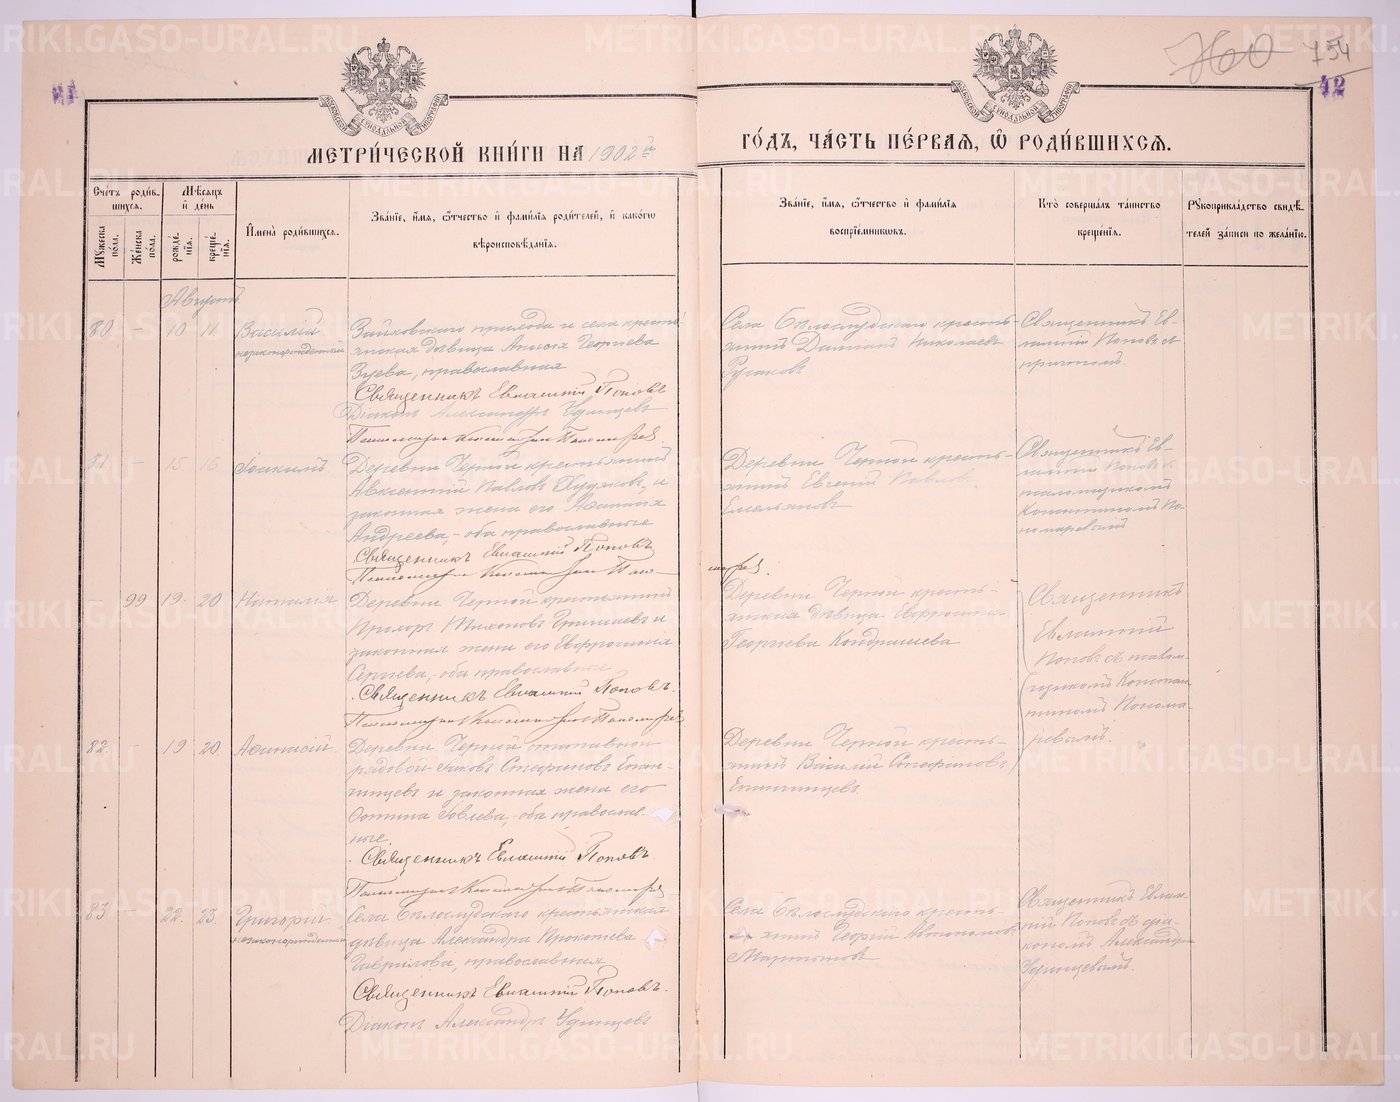 760 754
41
42
МЕТРИ́ЧЕСКОЙ КНИ́ГИ НА 1902 й
ГО́ДЪ, ЧА́СТЬ ПЕ́РВАЯ, Ѿ РОДИ́ВШИХСЯ.
Сче́тъ роди́вшихся.
Мѣ́сяцъ и де́нь
Му́жеска по́ла.
Же́нска по́ла.
рожде́нія.
креще́нія.
И҆мена̀ роди́вшихся.
Зва́ніе, и҆́мя, ѻ҆́тчество и҆ фами́лія роди́телей, и҆ како́гѡ
вѣроисповѣ́данія.
Зва́ніе, и҆́мя, ѻ҆́тчество и҆ фами́лія
воспріе́мниковъ.
Кто̀ соверша́лъ та́инство
креще́нія.
Рꙋкоприкла́дство свидѣ́-
телей за́писи по жела́нію.
Августъ
80 - 10 11 Василій
незаконнорожденный
Зайковского прихода и села кресть-
янская дѣвица Анисья Георгіева
Зуева, православная
Священникъ Евлампій Поповъ
Діаконъ Александръ Удинцевъ
Села Бѣлослудскаго кресть-
янинъ Даміанъ Николаевъ
Русаковъ
Священникъ Ев-
лампій Поповъ съ
причтомъ.
81 - 15 16 Іоакимъ
Деревни Черной крестьянинъ
Авксентій Павловъ
законная жена его
Андреева, - оба православные
Священникъ Евлампій Поповъ
Деревни Черной кресть-
янинъ Евгеній Павловъ
Емельяновъ
Священникъ Ев-
лампій Поповъ съ
псаломщикомъ
Константиномъ По-
номаревымъ
- 99 19 20 Наталія
Деревни Черной крестьянинъ
Прохоръ Тихоновъ и
законная жена его Евфросинія
Сергіева, оба православные
Священникъ Евлампій Поповъ.
Деревни Черной кресть-
янская дѣвица Евфросинія
Георгіева Кондрашева
Священникъ
Евлампій
Поповъ съ псалом-
щикомъ Констан-
тиномъ Понома-
ревымъ.
82 - 19 20 Аѳанасій
Деревни Черной отставной
рядовой Іаковъ Стефановъ Епан-
чинцевъ и законная жена его
Фотина Іовлева, - оба православ-
ные.
Священникъ Евлампій Поповъ.
Деревни Черной кресть-
янинъ Василій Стефановъ
Епанчинцевъ.
83 - 22. 23. Григорій
незаконнорожденный
Села Бѣлослудскаго крестьянская
дѣвица Александра Прокопіева
Гаврилова, православная
Священникъ Евлампій Поповъ.
Діаконъ Александръ Удинцевъ
Села Бѣлослудскаго кресть-
янинъ Георгій Автономовъ
Мартьяновъ
Священникъ Евлам-
пій Поповъ съ діа-
кономъ Александромъ
Удинцевымъ.